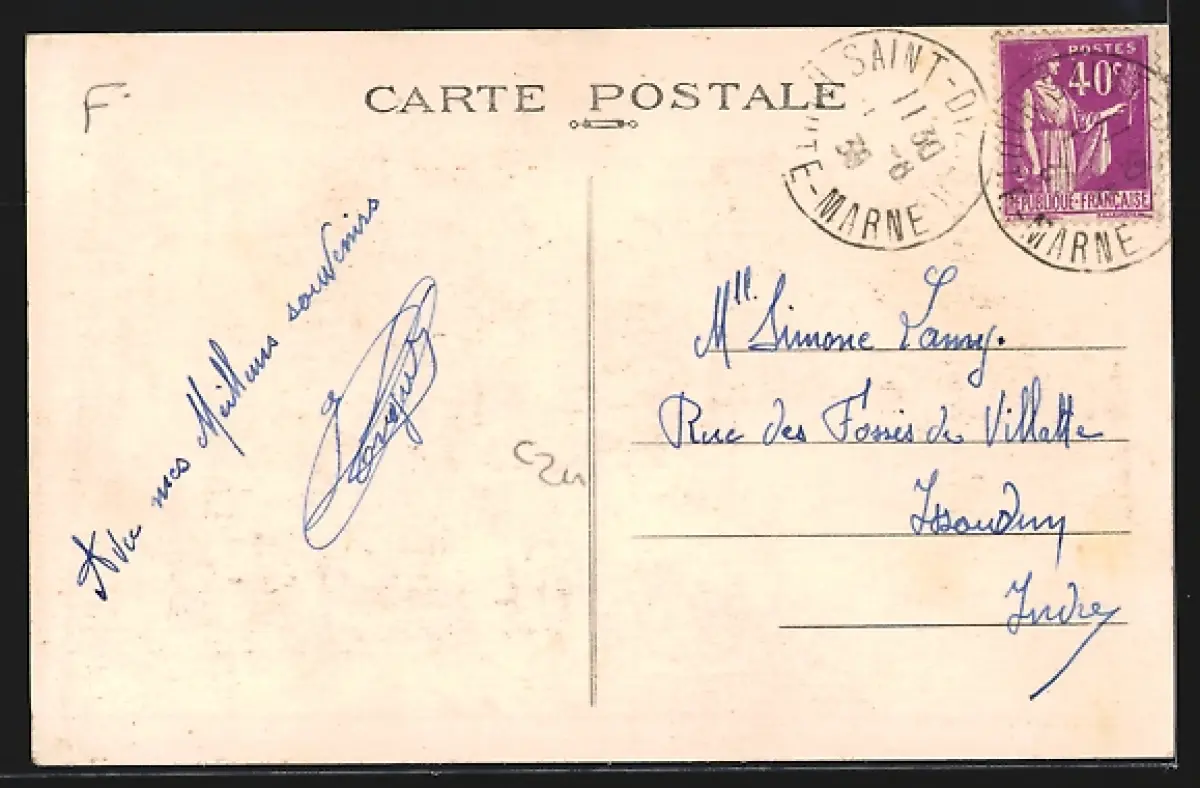 F.
CARTE POSTALE
SAINT-DI
11 30
1 - 8
36
TE-MARNE
POSTES
40c
REPUBLIQUE-FRANÇAISE
MARNE
Avec mes Meilleurs souvenirs
Mll. Simone
Rue des Fossés de Villatte
Issoudun
Indre